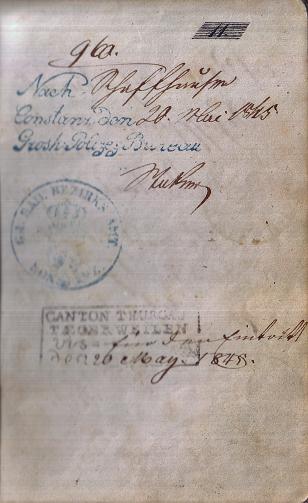 11
960.
Nach Schaffhausen
Constanz den 20. Mai 1845
Grosh. Polizey Bureau
G.H. BAD. BEZIRKS AMT
CANTON THURGAU
TÆGERWEILEN
Visa für den Eintritt
den 20 May. 1845.